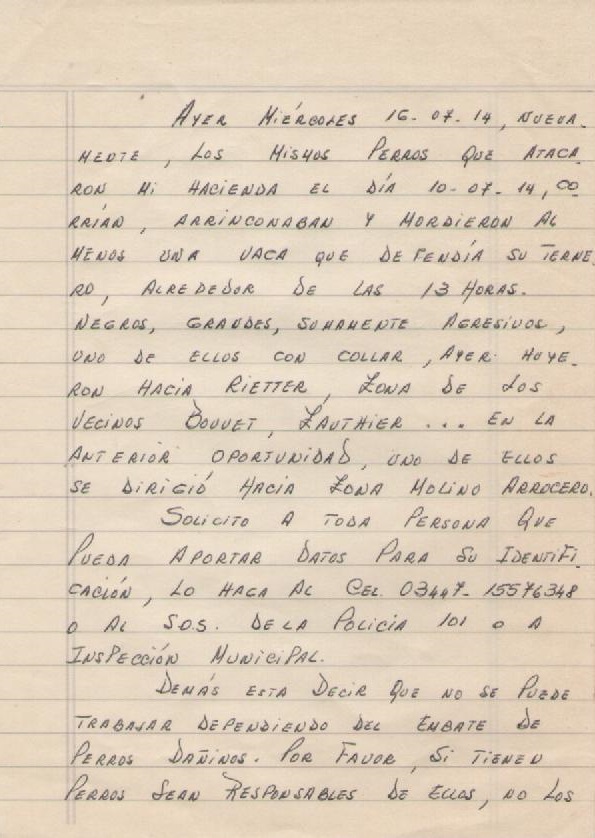 AYER MIÉRCOLES 16-07-14, NUEVA-
MENTE, LOS MISMOS PERROS QUE ATACA-
RON MI HACIENDA EL DÍA 10-07-14, CO
RRIÁN, ARRINCONABAN Y MORDIERON AL
MENOS UNA VACA QUE DEFENDÍA SU TERNE
RO, ALREDEDOR DE LAS 13 HORAS.
NEGROS, GRANDES, SUMAMENTE AGRESIVOS,
UNO DE ELLOS CON COLLAR, AYER HUYE-
RON HACIA RIETTER, ZONA DE LOS
VECINOS BOUVET, LAUTHIER... EN LA
ANTERIOR OPORTUNIDAD, UNO DE ELLOS
SE DIRIGIÓ HACIA ZONA MOLINO ARROCERO.
SOLICITO A TODA PERSONA QUE
PUEDA APORTAR DATOS PARA SU IDENTIFI-
CACIÓN, LO HAGA AL CEL. 03447-15576348
O AL S.O.S. DE LA POLICIA 101 O A
INSPECCIÓN MUNICIPAL.
DEMÁS ESTA DECIR QUE NO SE PUEDE
TRABAJAR DEPENDIENDO DEL EMBATE DE
PERROS DAÑINOS. POR FAVOR, SI TIENEN
PERROS SEAN RESPONSABLES DE ELLOS, NO LOS